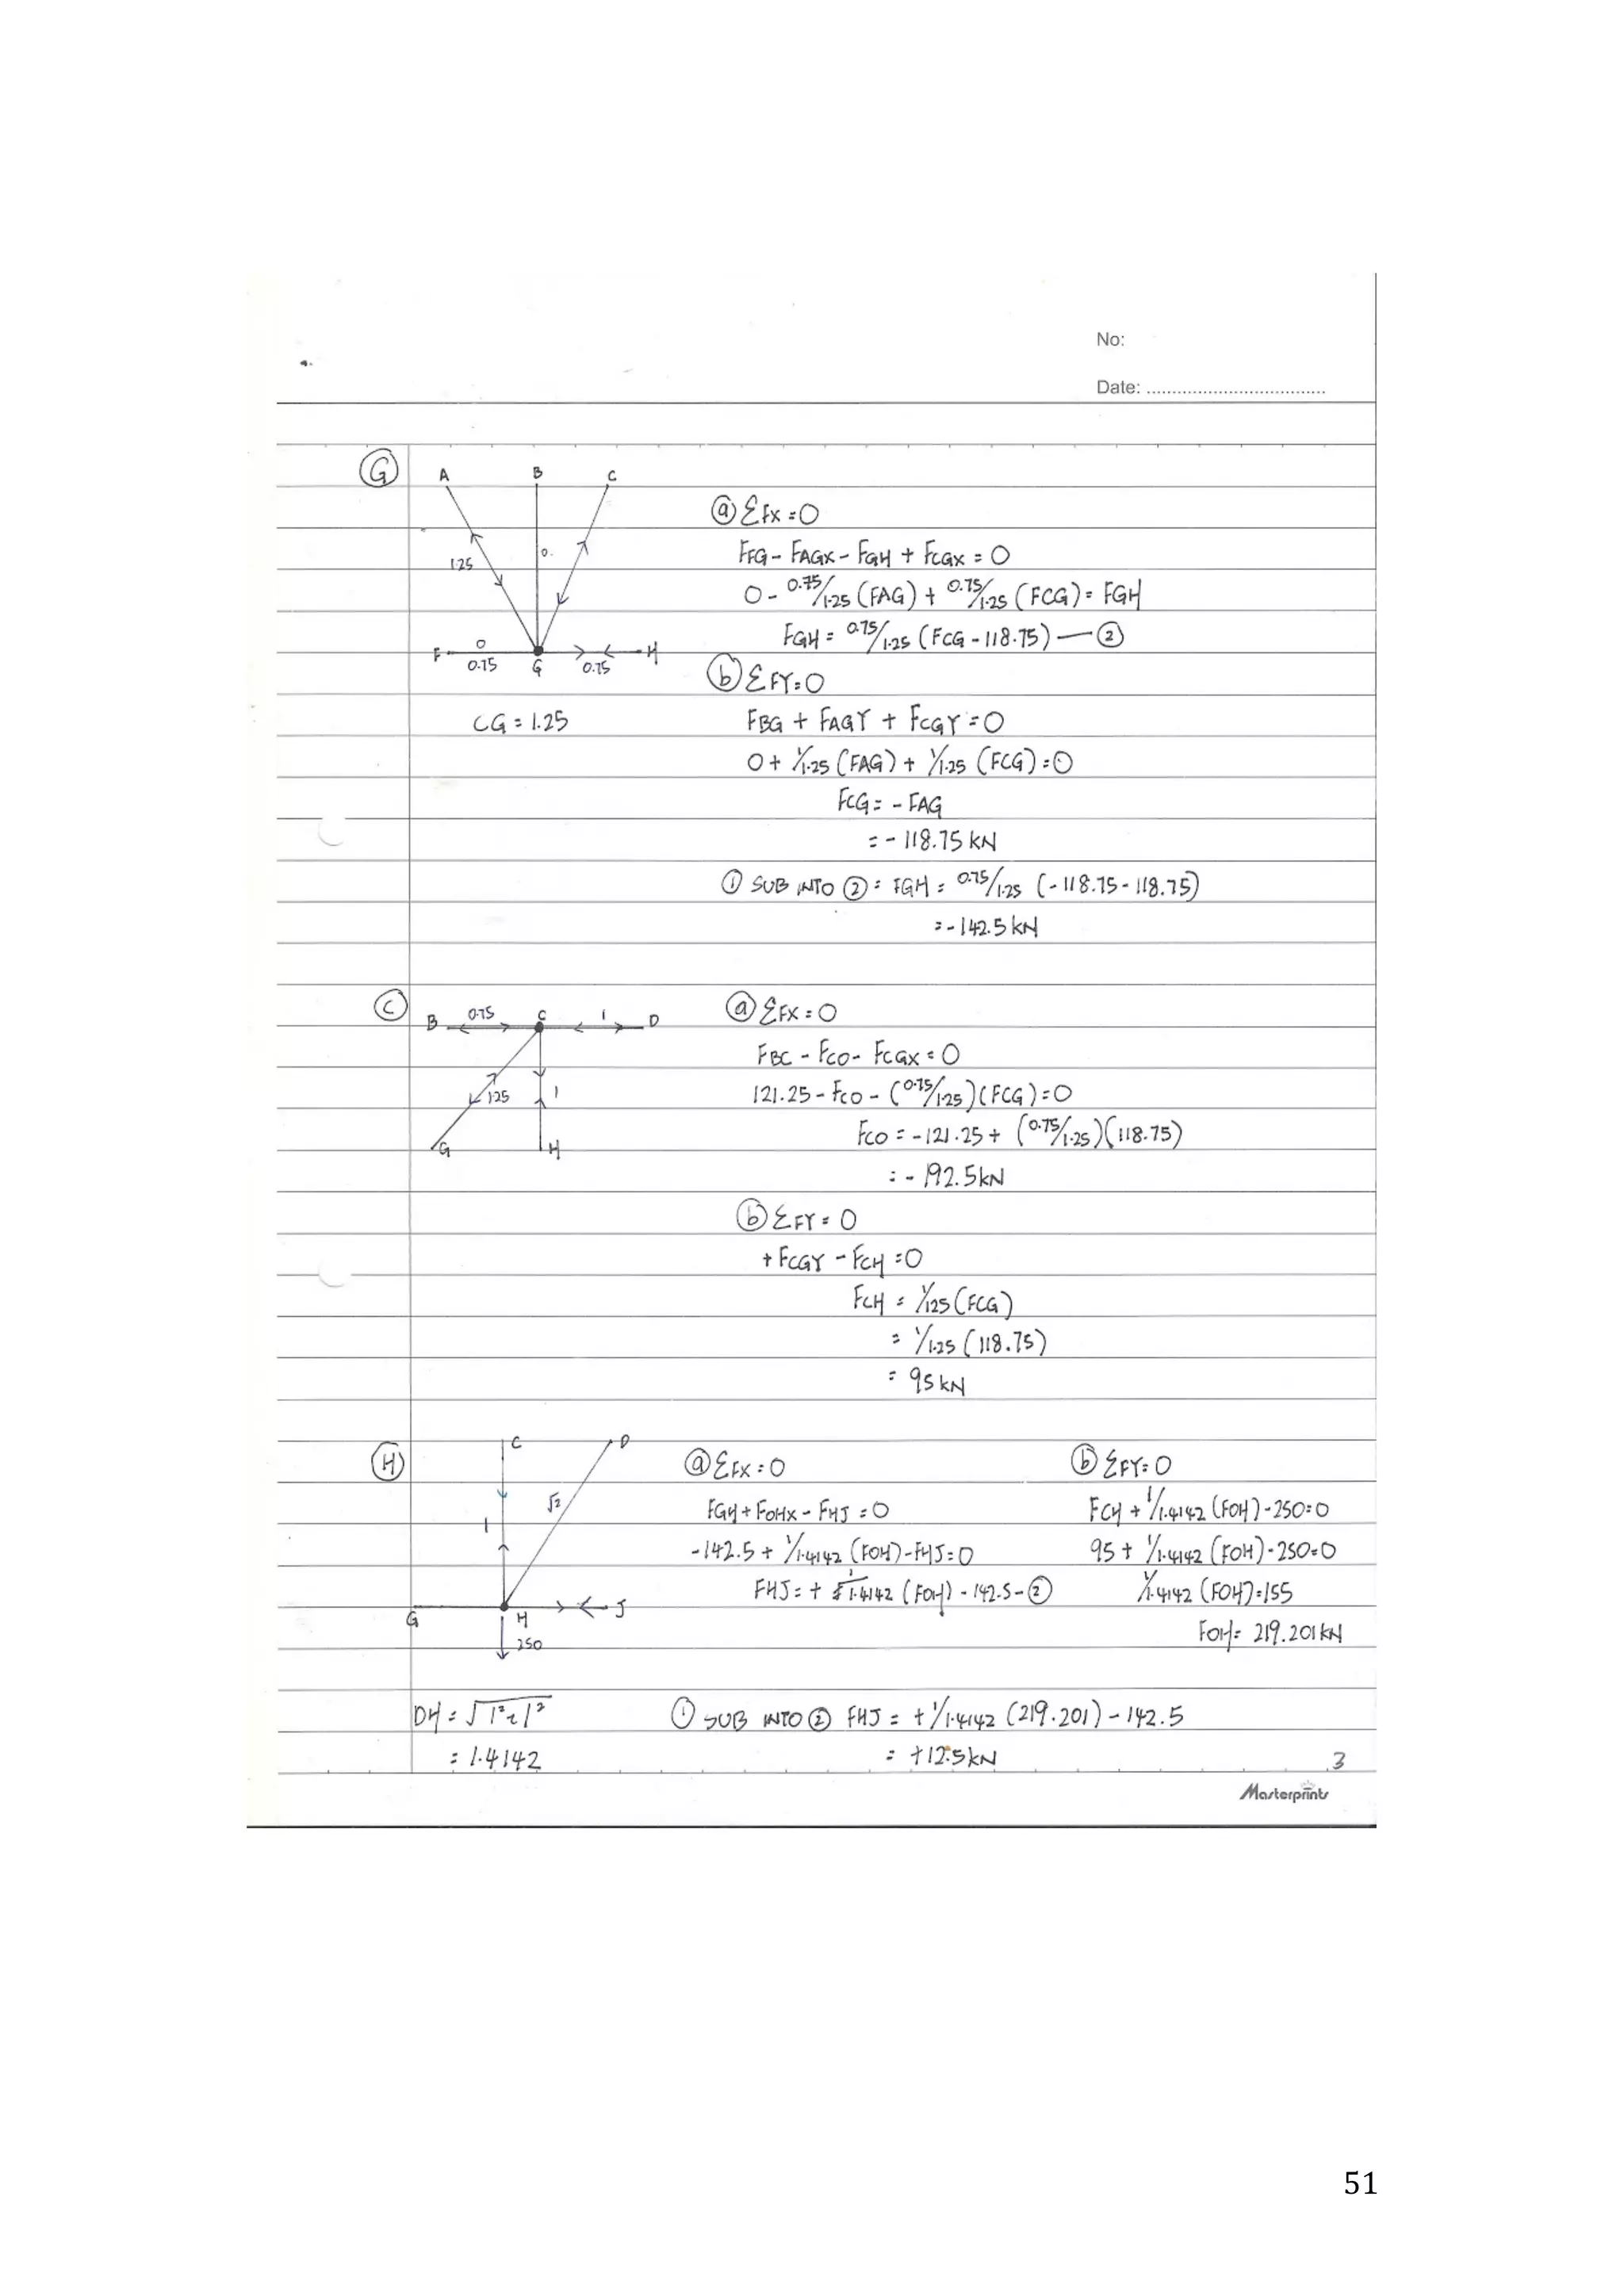 No:
Date: ................................
G
A B C
1.25
0.
F 0 G H
0.75 0.75
CG = 1.25
ⓐ ΣFX = 0
FFG - FAGX - FGH + FCGX = 0
0 - 0.75/1.25 (FAG) + 0.75/1.25 (FCG) = FGH
FGH = 0.75/1.25 (FCG - 118.75) — ②
ⓑ ΣFY = 0
FBG + FAGY + FCGY = 0
0 + 1/1.25 (FAG) + 1/1.25 (FCG) = 0
FCG = - FAG
= - 118.75 kN
① SUB INTO ② = FGH = 0.75/1.25 (-118.75 - 118.75)
= - 142.5 kN
C
B 0.75 C 1 D
1.25 1
G H
ⓐ ΣFX = 0
FBC - FCD - FCGX = 0
121.25 - FCD - (0.75/1.25)(FCG) = 0
FCD = -121.25 + (0.75/1.25)(118.75)
= - 192.5 kN
ⓑ ΣFY = 0
+ FCGY - FCH = 0
FCH = 1/1.25 (FCG)
= 1/1.25 (118.75)
= 95 kN
H
C D
√2
1
G H J
250
DH = √1²+1²
= 1.4142
ⓐ ΣFX = 0
FGH + FDHX - FHJ = 0
-142.5 + 1/1.4142 (FDH) - FHJ = 0
FHJ = + 1/1.4142 (FDH) - 142.5 - ②
ⓑ ΣFY = 0
FCH + 1/1.4142 (FDH) - 250 = 0
95 + 1/1.4142 (FDH) - 250 = 0
1/1.4142 (FDH) = 155
FDH = 219.201 kN
① SUB INTO ② FHJ = + 1/1.4142 (219.201) - 142.5
= +12.5 kN
3
Masterprints
51